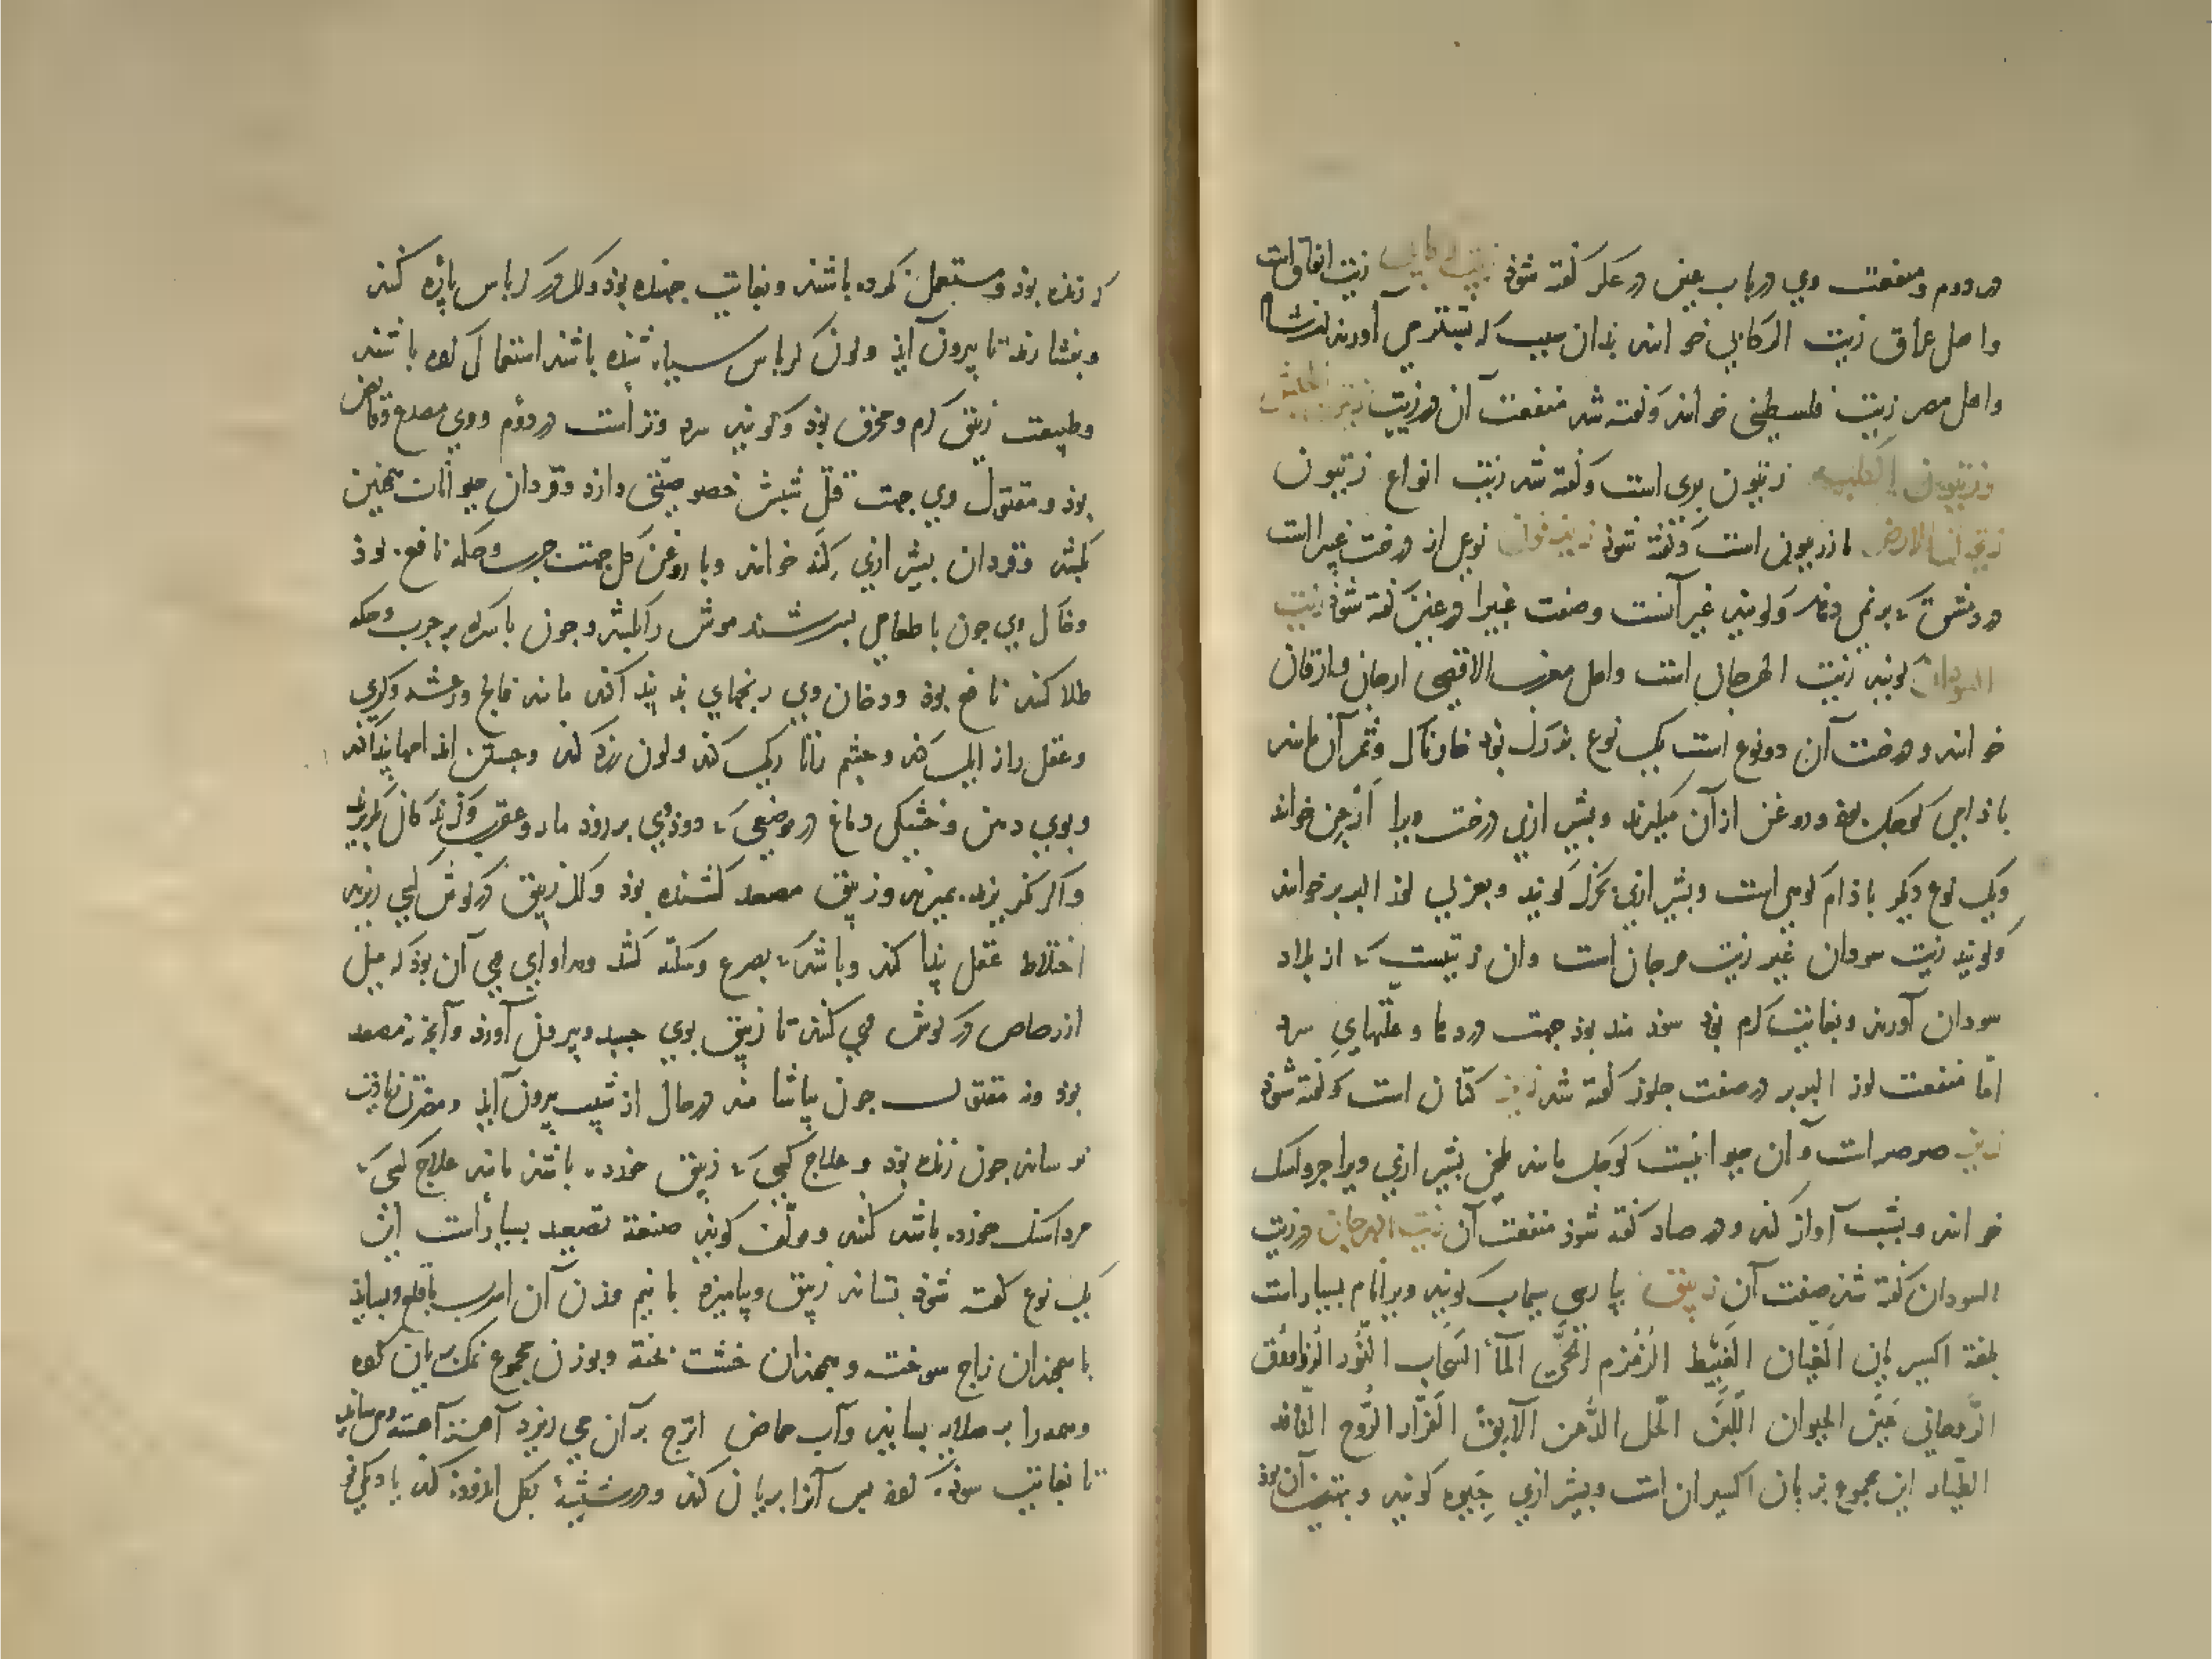 در دوم و منفعت وی در باب عین در عکر گفته شود زیت رکابی زیت انفاق است
و اهل عراق زیت الرکابی خوانند بدان سبب که بشتر می آورند از شام
و اهل مصر زیت فلسطینی خوانند و گفته شد منفعت آن در زیت
زیتون الکلبه زیتون بری است و گفته شد زیت انواع زیتون
زیتون الارض مازریون است و گفته شود نوعی از درخت غبیرا است
در دمشق که بر نمی دهد و گویند غیر آنست و صفت غبیرا در عین گفته شود زیت
السودان گویند زیت الهرجان است و اهل مغرب الاقصی ارجان و ارقان
خوانند و درخت آن دو نوع است یک نوع بزرک بود خارناک و ثمر آن مانند
باذامی کوچک بود و روغن از آن میگیرند و بشیرازی درخت ویرا ارجن خوانند
و یک نوع دیگر باذام کوهی است و بشیرازی بخرک گویند و بعربی لوز البربر خوانند
و گویند زیت سودان غیر زیت هرجان است و آن زیتیست که از بلاد
سودان آورند و بغایت گرم بود سودمند بود جهت دردها و علتهای سرد
اما منفعت لوز البربر در صفت جلوز گفته شد کتان است و گفته شود
زیز صرصر است و آن حیوانیست کوچک مانند ملخ بشیرازی ویرا جرواسک
خوانند و بشب آواز کند و در صاد گفته شود منفعت آن زیت الهرجان در زیت
السودان گفته شد صفت آن زیبق بپارسی سیماب گویند و ویرا نام بسیار است
بلغة اکسیریان الغیان الغبیط الزمزم الحی الماء السحاب النور الزاووق
الرجراج عین الحیوان اللبن الخل الدهن الآبق الفرار الروح النافذ
الطیار این مجموع بزبان اکسیریان است و بشیرازی جیوه گویند و بهترین آن بود
که زنده بود و مستعمل نکرده باشند و بغایت جهنده بود و گر در کرباس پاره کنند
و بفشارند تا بیرون آید و لون کرباس سیاه شده باشد استعمال کرده باشند
و طبیعت زیبق گرم و محرق بود و گویند سرد و تر است در دوم و وی مصدع و قابض
بود و مقتول وی جهت قتل شپش خصوصیتی دارد و قردان حیوانات همچنین
بکشد و قردان بشیرازی کنه خوانند و با روغن گل جهت جرب و حکه نافع بود
و خاک وی چون با طعامی بسرشند موش را بکشد و چون با سرکه بر جرب و حکه
طلا کنند نافع بود و دخان وی رنجهای بد پیدا کند مانند فالج و رعشه و کری
و عقل را زایل کند و چشم را تاریک کند و لون زرد کند و جستن اندامها پیدا کند
و بوی دهن و خشکی دماغ و در موضعی که دود وی بر رود مار و عقرب و گزندگان بگریزند
و اگر نگریزند بمیرند و زیبق مصعد کشنده بود و گر زیبق در گوش کسی ریزند
اختلاط عقل پیدا کند و باشد که بصرع و سکته کشد و مداوای وی آن بود که میل
از رصاص در گوش می کنند تا زیبق بوی چسبد و بیرون آورد و آنچه نه مصعد
بود و نه مقتول چون بیاشامند در حال از شیب بیرون آید و مضرت زیادت
نرساند چون زنده بود و علاج کسی که زیبق خورده باشد مانند علاج کسی که
مرداسنک خورده باشد کنند و مؤلف گوید صنعة تصعید بسیار است این
یک نوع گفته شود بستانند زیبق و بیامیزند با نیم وزن آن اسرب یا قلع و بساید
با همچندان زاج سوخته و همچندان خشت پخته و بوزن مجموع نمک بریان کرده
و همه را بر صلایه بسایند و آب حماض اترج بر آن می ریزند آهسته آهسته و می سایند
تا بغایت سوده گردد پس آنرا بریان کنند و در شیشهٔ بگل اندوده کند یا دیگی